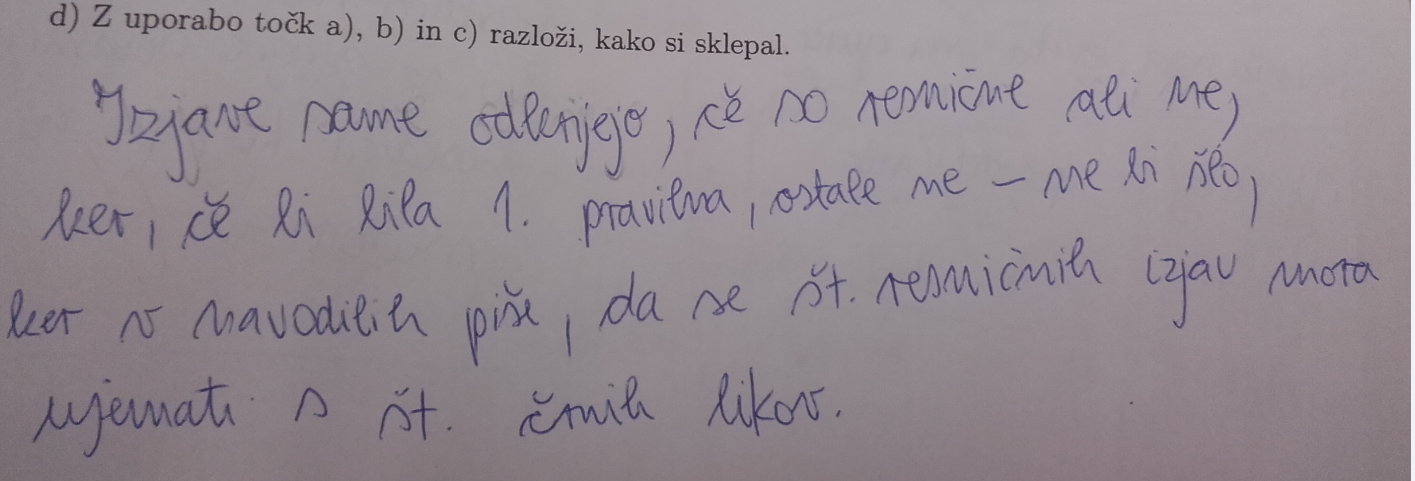 d) Z uporabo točk a), b) in c) razloži, kako si sklepal.
Izjave same odločijo, če so resnične ali ne,
ker, če bi bila 1. pravilna, ostale ne – ne bi šlo,
ker v navodilih piše, da se št. resničnih izjav mora
ujemati s št. črnih likov.